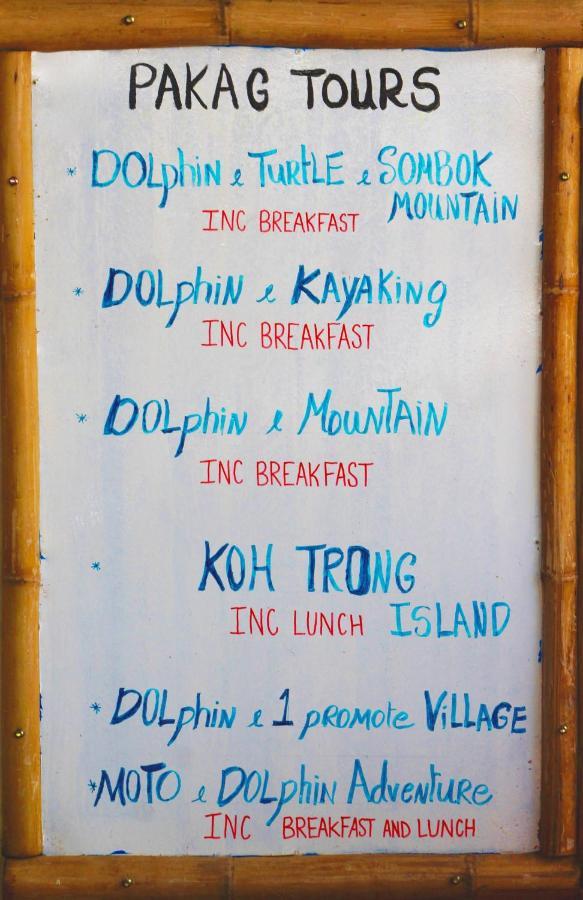 PAKAG TOURS
* DOLphiN & TURtLE & SOMBOK
MOUNTAIN
INC BREAKFAST
* DOLphiN & KAyAKing
INC BREAKFAST
* DOLphin & MOUNTAIN
INC BREAKFAST
* KOH TRONG
INC LUNCH ISLAND
* DOLphin & 1 promote ViLLAGE
*MOTO & DOLphin Adventure
INC BREAKFAST AND LUNCH